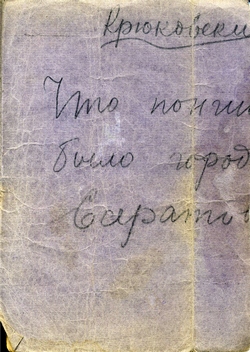 Крюковски
Что понги
было город
Саратов